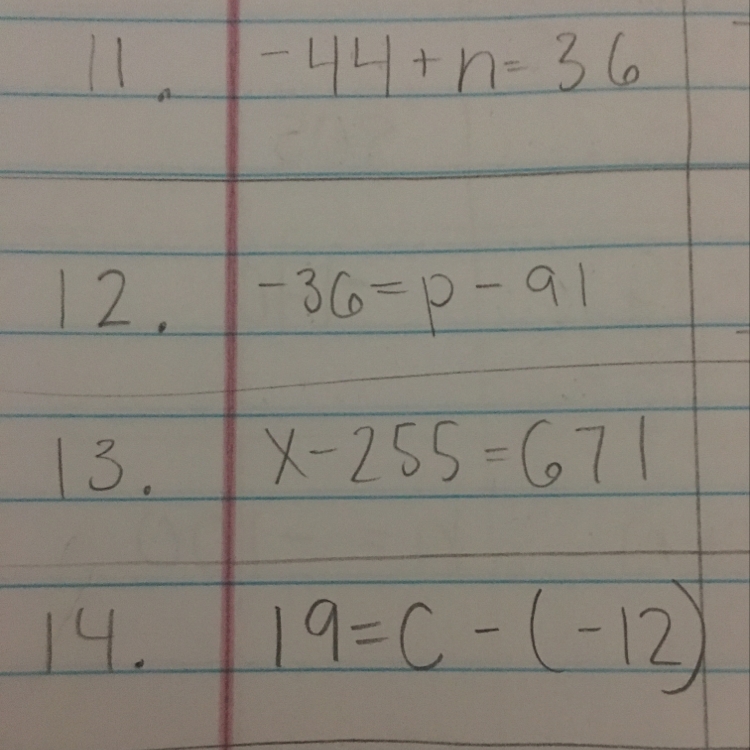 11. -44+n=36
12. -36=p-91
13. x-255=671
14. 19=C-(-12)